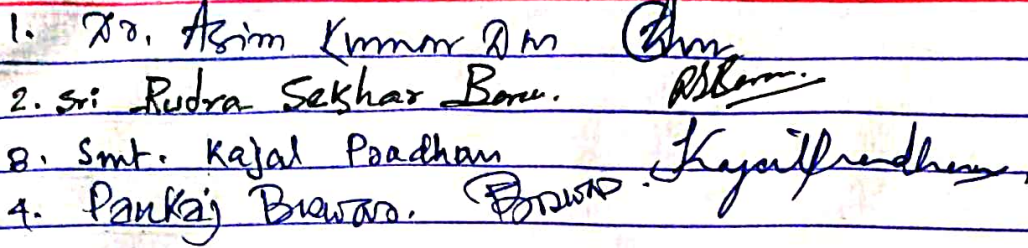 1. Dr. Asim Kumar Das
2. Sri Rudra Sekhar Bera. RSBera.
3. Smt. Kajal Pradhan Kajal Pradhan
4. Pankaj Biswas. Biswas.